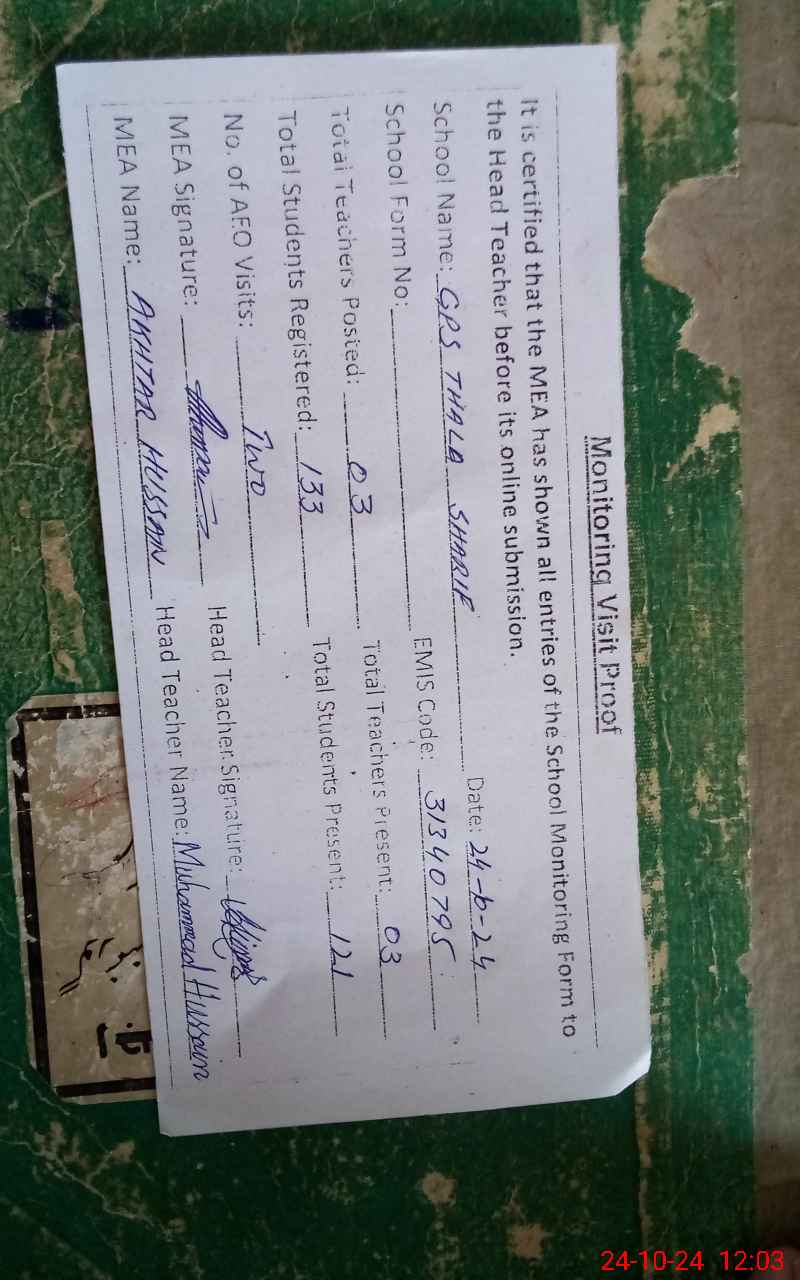 Monitoring Visit Proof
It is certified that the MEA has shown all entries of the School Monitoring Form to
the Head Teacher before its online submission.
School Name: GPS THALA SHARIF Date: 24-10-24
School Form No: EMIS Code: 31340795
Total Teachers Posted: 03 Total Teachers Present: 03
Total Students Registered: 133 Total Students Present: 121
No. of AEO Visits: Two
MEA Signature: Head Teacher Signature:
MEA Name: AKHTAR HUSSAIN Head Teacher Name: Muhammad Hussain
24-10-24 12:03